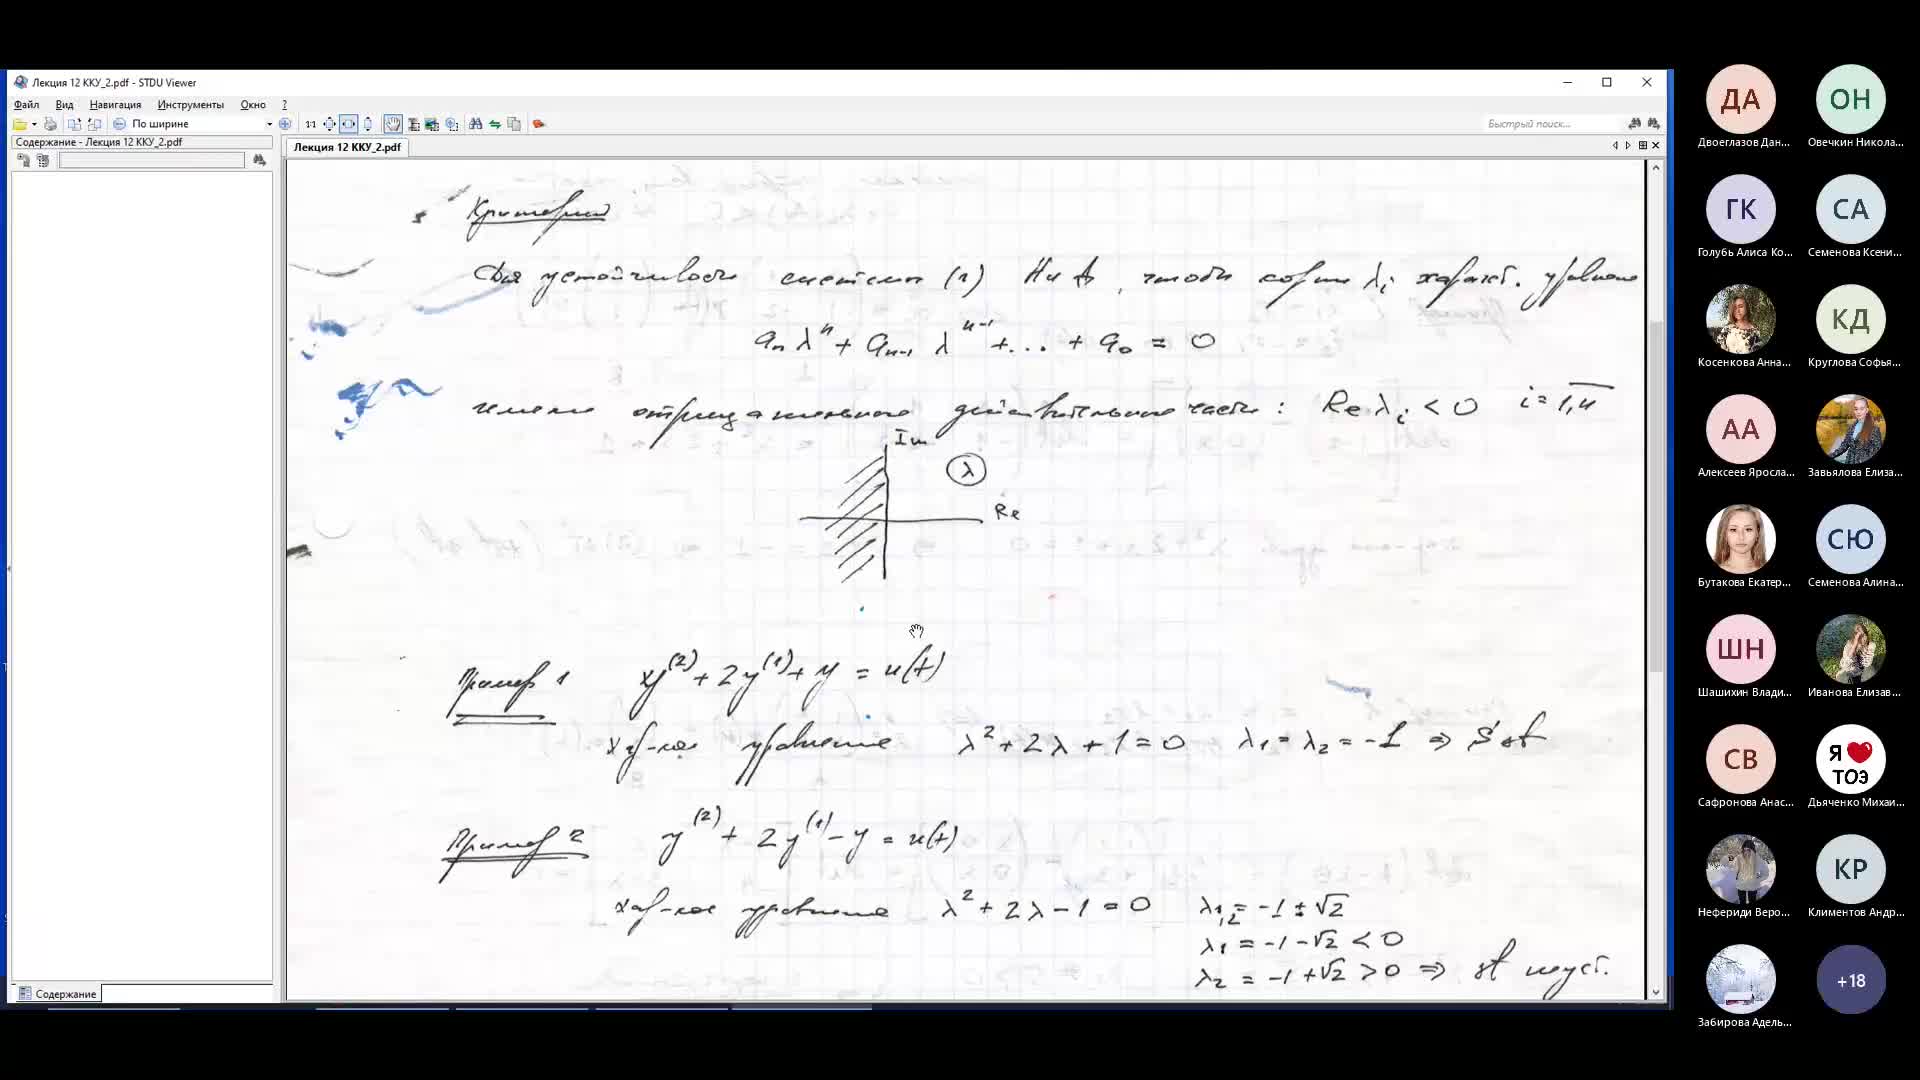 Лекция 12 ККУ_2.pdf - STDU Viewer
Файл Вид Навигация Инструменты Окно ?
1:1 По ширине Быстрый поиск...
Содержание - Лекция 12 ККУ_2.pdf
Лекция 12 ККУ_2.pdf
Критерий
Для устойчивости системы (1) НиД, чтобы корни λi характ. уравнения
aₙ λⁿ + aₙ₋₁ λⁿ⁻¹ + ... + a₀ = 0
имели отрицательные действительные части: Re λi < 0 i = 1,n
Im
λ
Re
Пример 1 y⁽²⁾ + 2y⁽¹⁾ + y = u(t)
хар-кое уравнение λ² + 2λ + 1 = 0 λ₁ = λ₂ = -1 ⇒
Пример 2 y⁽²⁾ + 2y⁽¹⁾ - y = u(t)
хар-кое уравнение λ² + 2λ - 1 = 0 λ₁,₂ = -1 ± √2
λ₁ = -1 - √2 < 0
λ₂ = -1 + √2 > 0 ⇒ неуст.
Содержание
ДА ОН
Двоеглазов Дан... Овечкин Никола...
ГК СА
Голубь Алиса Ко... Семенова Ксени...
КД
Косенкова Анна... Круглова Софья...
АА
Алексеев Яросла... Завьялова Елиза...
СЮ
Бутакова Екатер... Семенова Алина...
ШН
Шашихин Влади... Иванова Елизав...
СВ Я ТОЭ
Сафронова Анас... Дьяченко Михаи...
КР
Нефериди Веро... Климентов Андр...
+18
Забирова Адель...